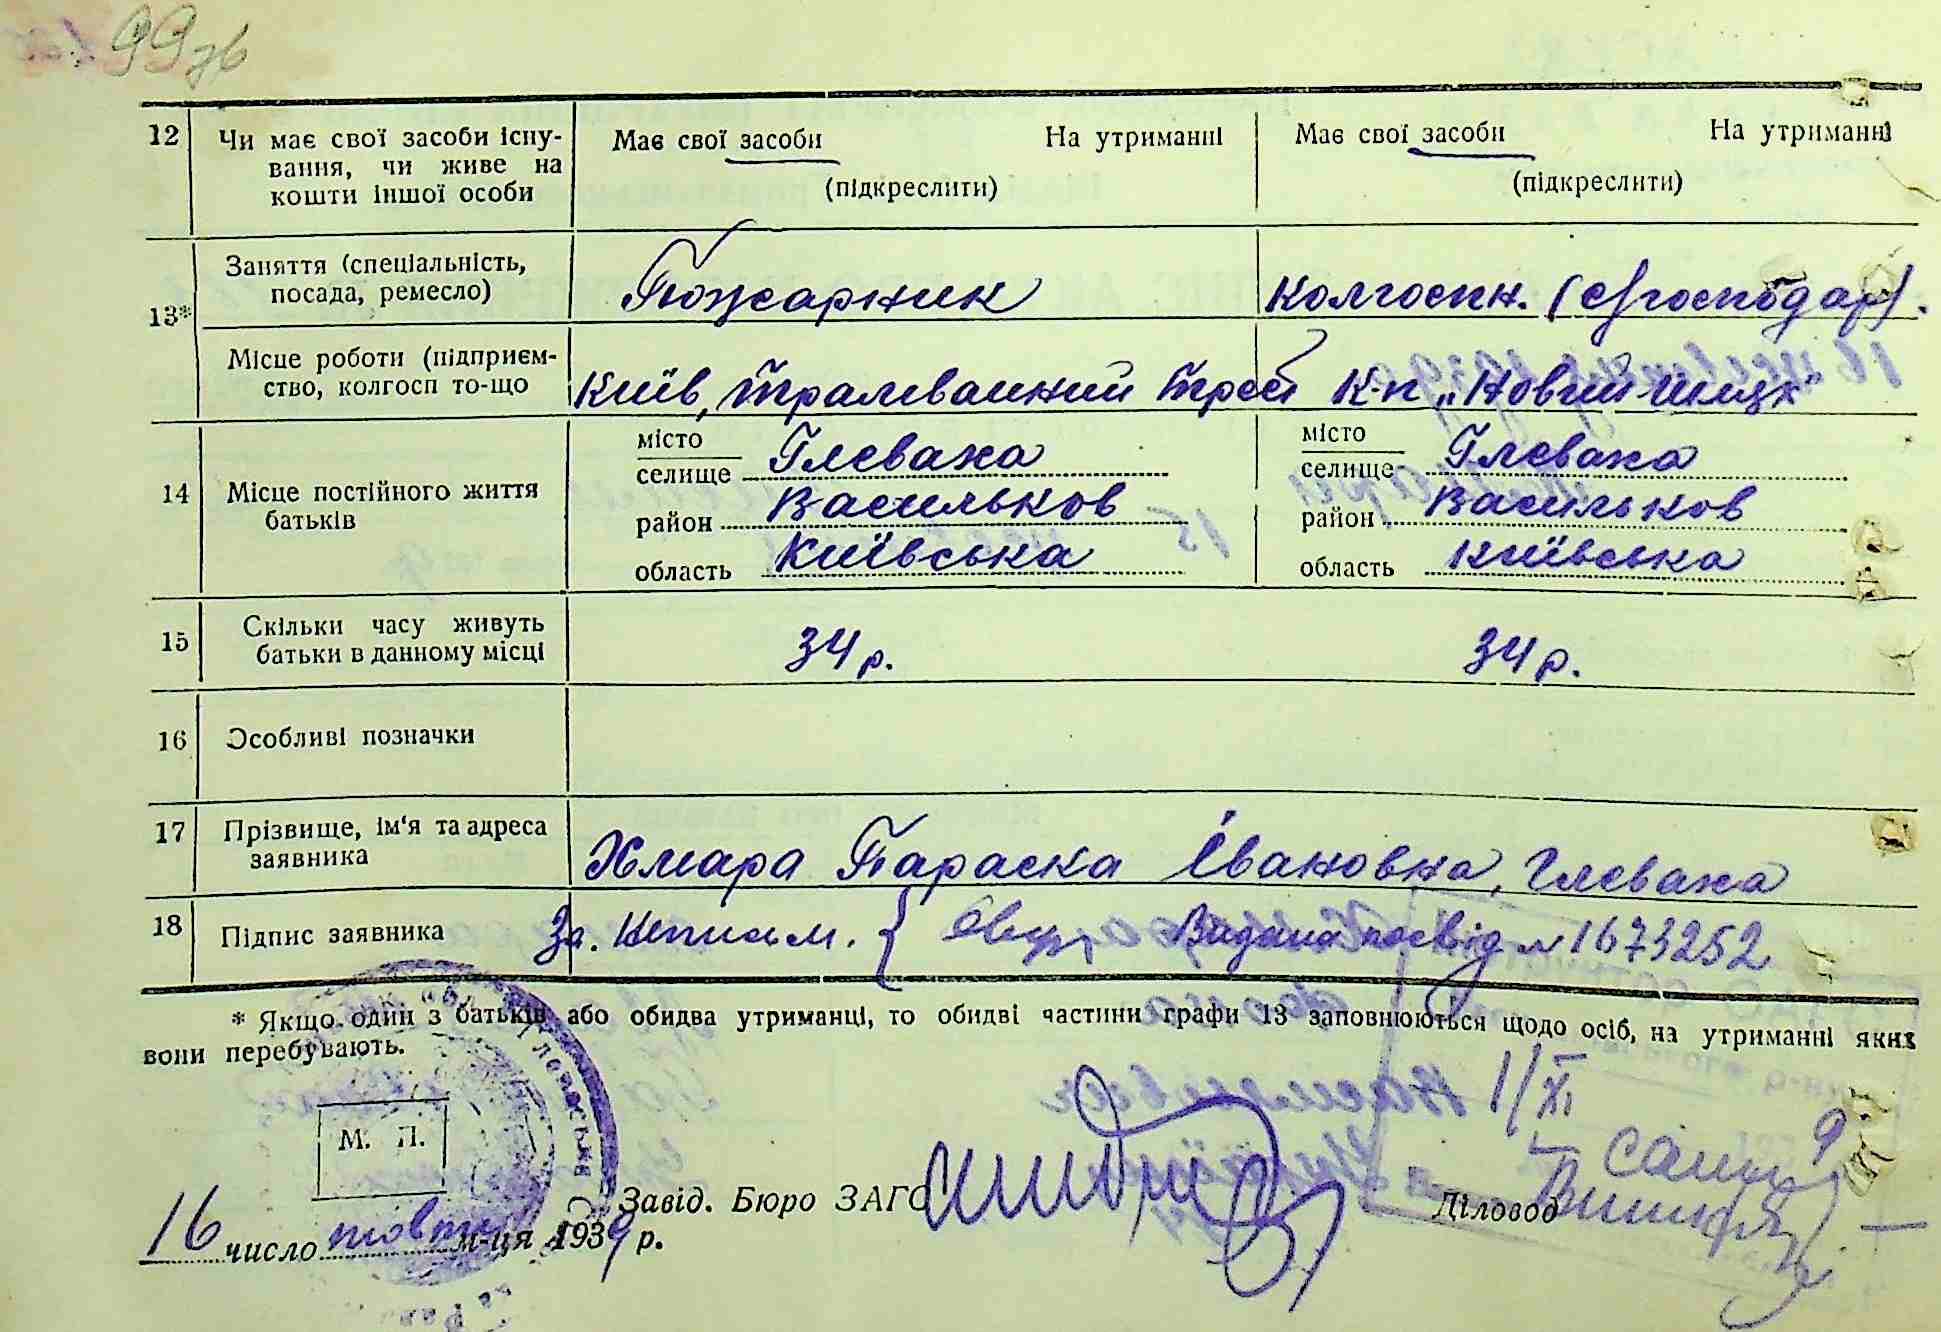 99зв
12 Чи має свої засоби існу- Має свої засоби На утриманні Має свої засоби На утриманні
вання, чи живе на (підкреслити) (підкреслити)
кошти іншої особи
13* Заняття (спеціальність, Пожарник колгоспн. (с/господар).
посада, ремесло)
Місце роботи (підприєм- Київ, Трамвайний Трест К-п „Новий шлях"
ство, колгосп то-що
14 Місце постійного життя місто Глеваха місто Глеваха
батьків селище селище
район Васильков район Васильков
область Київська область Київська
15 Скільки часу живуть 34 р. 34 р.
батьки в данному місці
16 Особливі позначки
17 Прізвище, ім'я та адреса Хмара Параска Івановна, Глеваха
заявника
18 Підпис заявника За. Неписьм. { Видано посвід № 1673252
* Якщо один з батьків або обидва утриманці, то обидві частини графи 13 заповнюються щодо осіб, на утриманні яких
вони перебувають.
1/XI
М. П.
Завід. Бюро ЗАГС Діловод
16 число жовтн м-ця 1939 р.